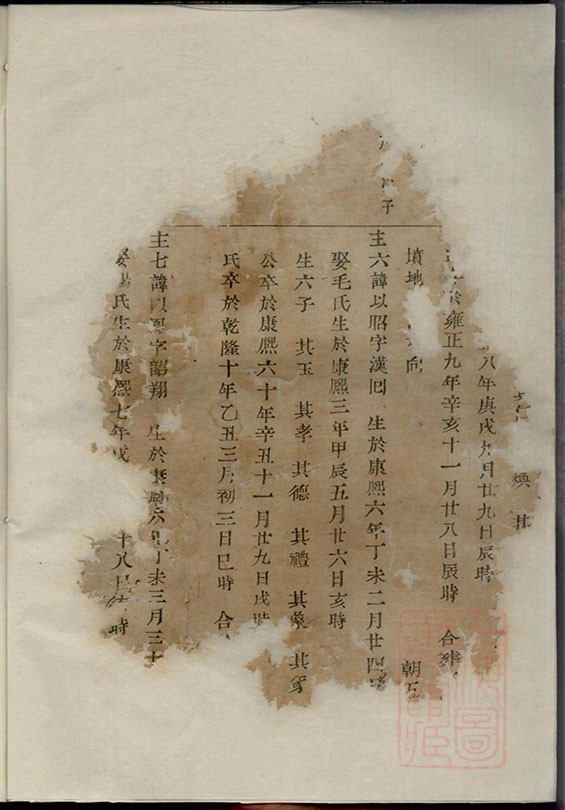 子
煥 其
八年庚戌九月廿九日辰時
於雍正九年辛亥十一月廿八日辰時 合葬
墳地 向 朝
圭六諱以昭字漢回 生於康熙六年丁未二月廿四
娶毛氏生於康熙三年甲辰五月廿六日亥時
生六子 其玉 其孝 其德 其禮 其 其
公卒於康熙六十年辛丑十一月廿九日戌時
氏卒於乾隆十年乙丑三月初三日巳時 合
圭七諱以 字韶翔 生於康熙六年丁未三月三十
氏生於康熙七年戊 十八日 時